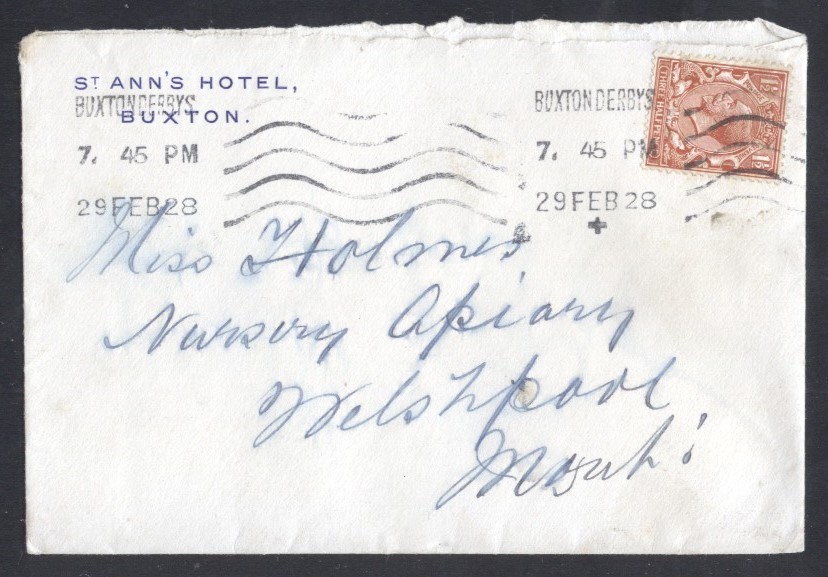 ST ANN'S HOTEL,
BUXTON.
BUXTON DERBYS.
7. 45 PM
29 FEB 28
BUXTON DERBYS
7. 45 PM
29 FEB 28
+
1½ 1½
THREE HALF PENCE
Miss Holmes
Nursery Apiary
Welshpool